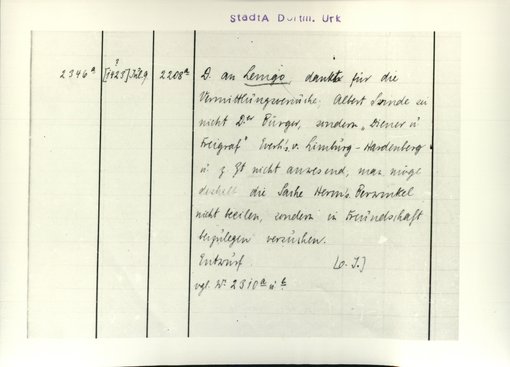 StadtA Dortm. Urk
2346ª [1423?] Juli 9 2208ª D. an Lemgo, dankt für die
Vermittlungsversuche; Albert Sunde sei
nicht D.er Bürger, sondern „Diener u
Freigraf" Everhs v. Limburg-Hardenberg
u z. Zt nicht anwesend, man möge
deshalb die Sache Herms Perwinkel
nicht beeilen, sondern in Freundschaft
beizulegen versuchen.
Entwurf [o. J.]
vgl. Nr. 2310ª u b.